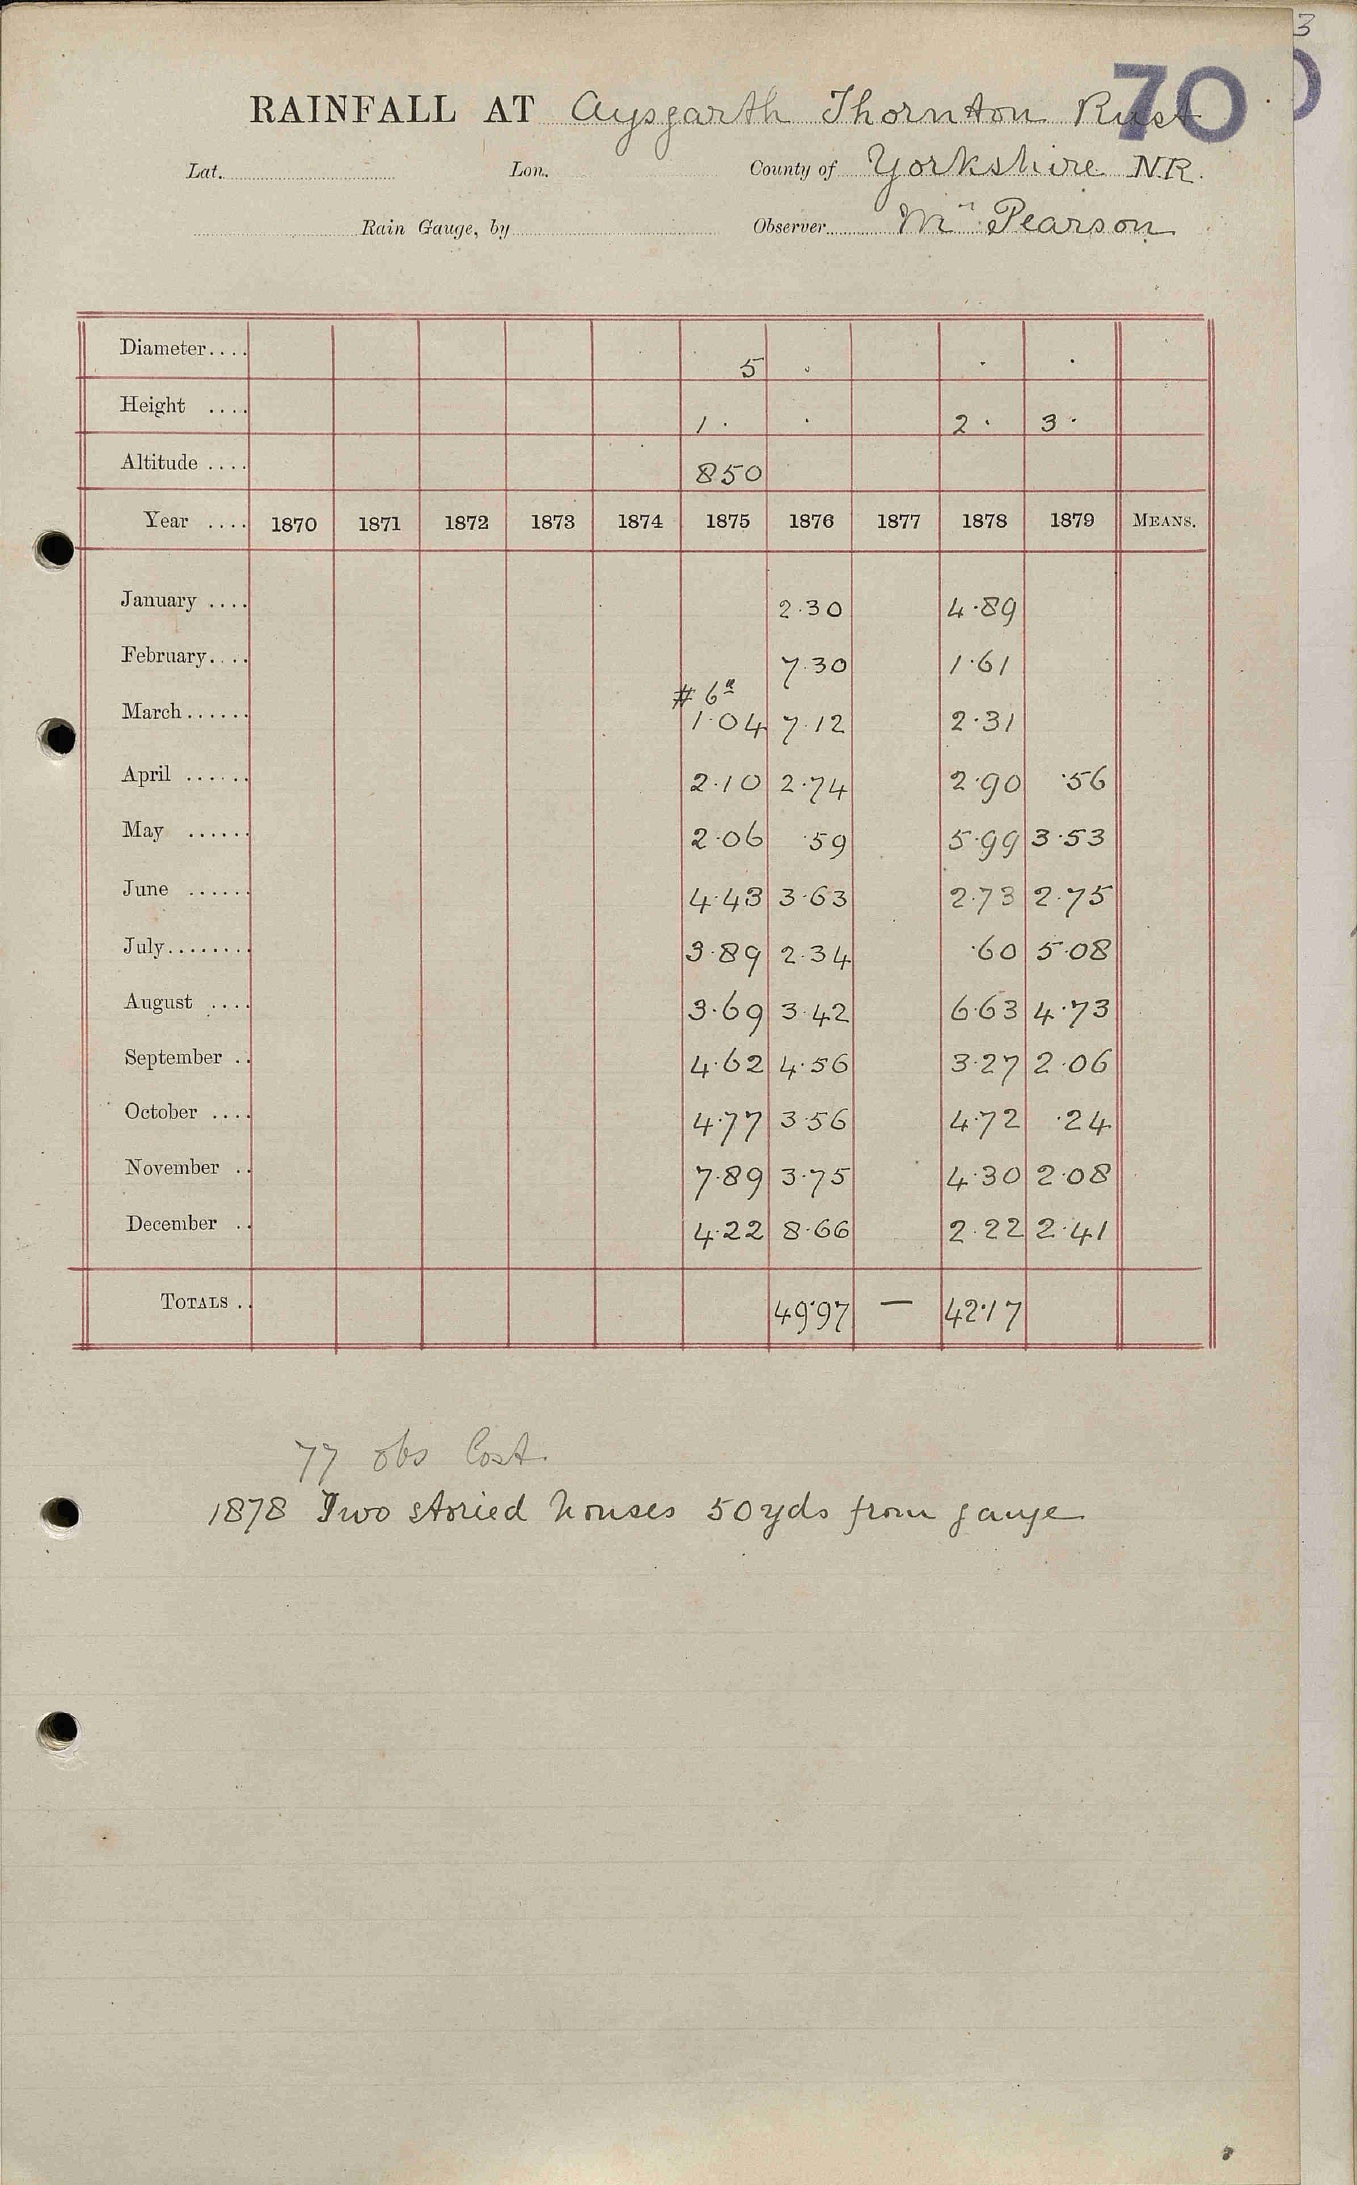 3
70
RAINFALL AT Aysgarth Thornton Rust
Lat. Lon. County of Yorkshire N.R.
Rain Gauge, by Observer Mr Pearson
Diameter.... 5 . . .
Height .... 1 . . 2 . 3 .
Altitude .... 850
Year .... 1870 1871 1872 1873 1874 1875 1876 1877 1878 1879 MEANS.
January .... 2.30 4.89
February.... 7.30 1.61
# 6
March...... 1.04 7.12 2.31
April ...... 2.10 2.74 2.90 .56
May ...... 2.06 .59 5.99 3.53
June ...... 4.43 3.63 2.73 2.75
July........ 3.89 2.34 .60 5.08
August .... 3.69 3.42 6.63 4.73
September .. 4.62 4.56 3.27 2.06
October .... 4.77 3.56 4.72 .24
November .. 7.89 3.75 4.30 2.08
December .. 4.22 8.66 2.22 2.41
TOTALS .. 49.97 — 42.17
77 obs lost.
1878 Two storied houses 50 yds from gauge